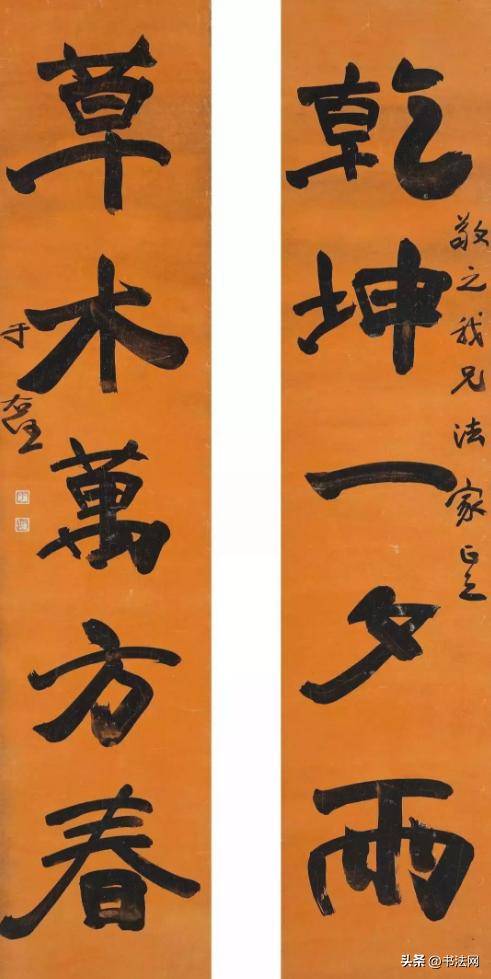 乾坤一夕雨
敬之我兄法家正之
草木萬方春
于右任
头条@书法网